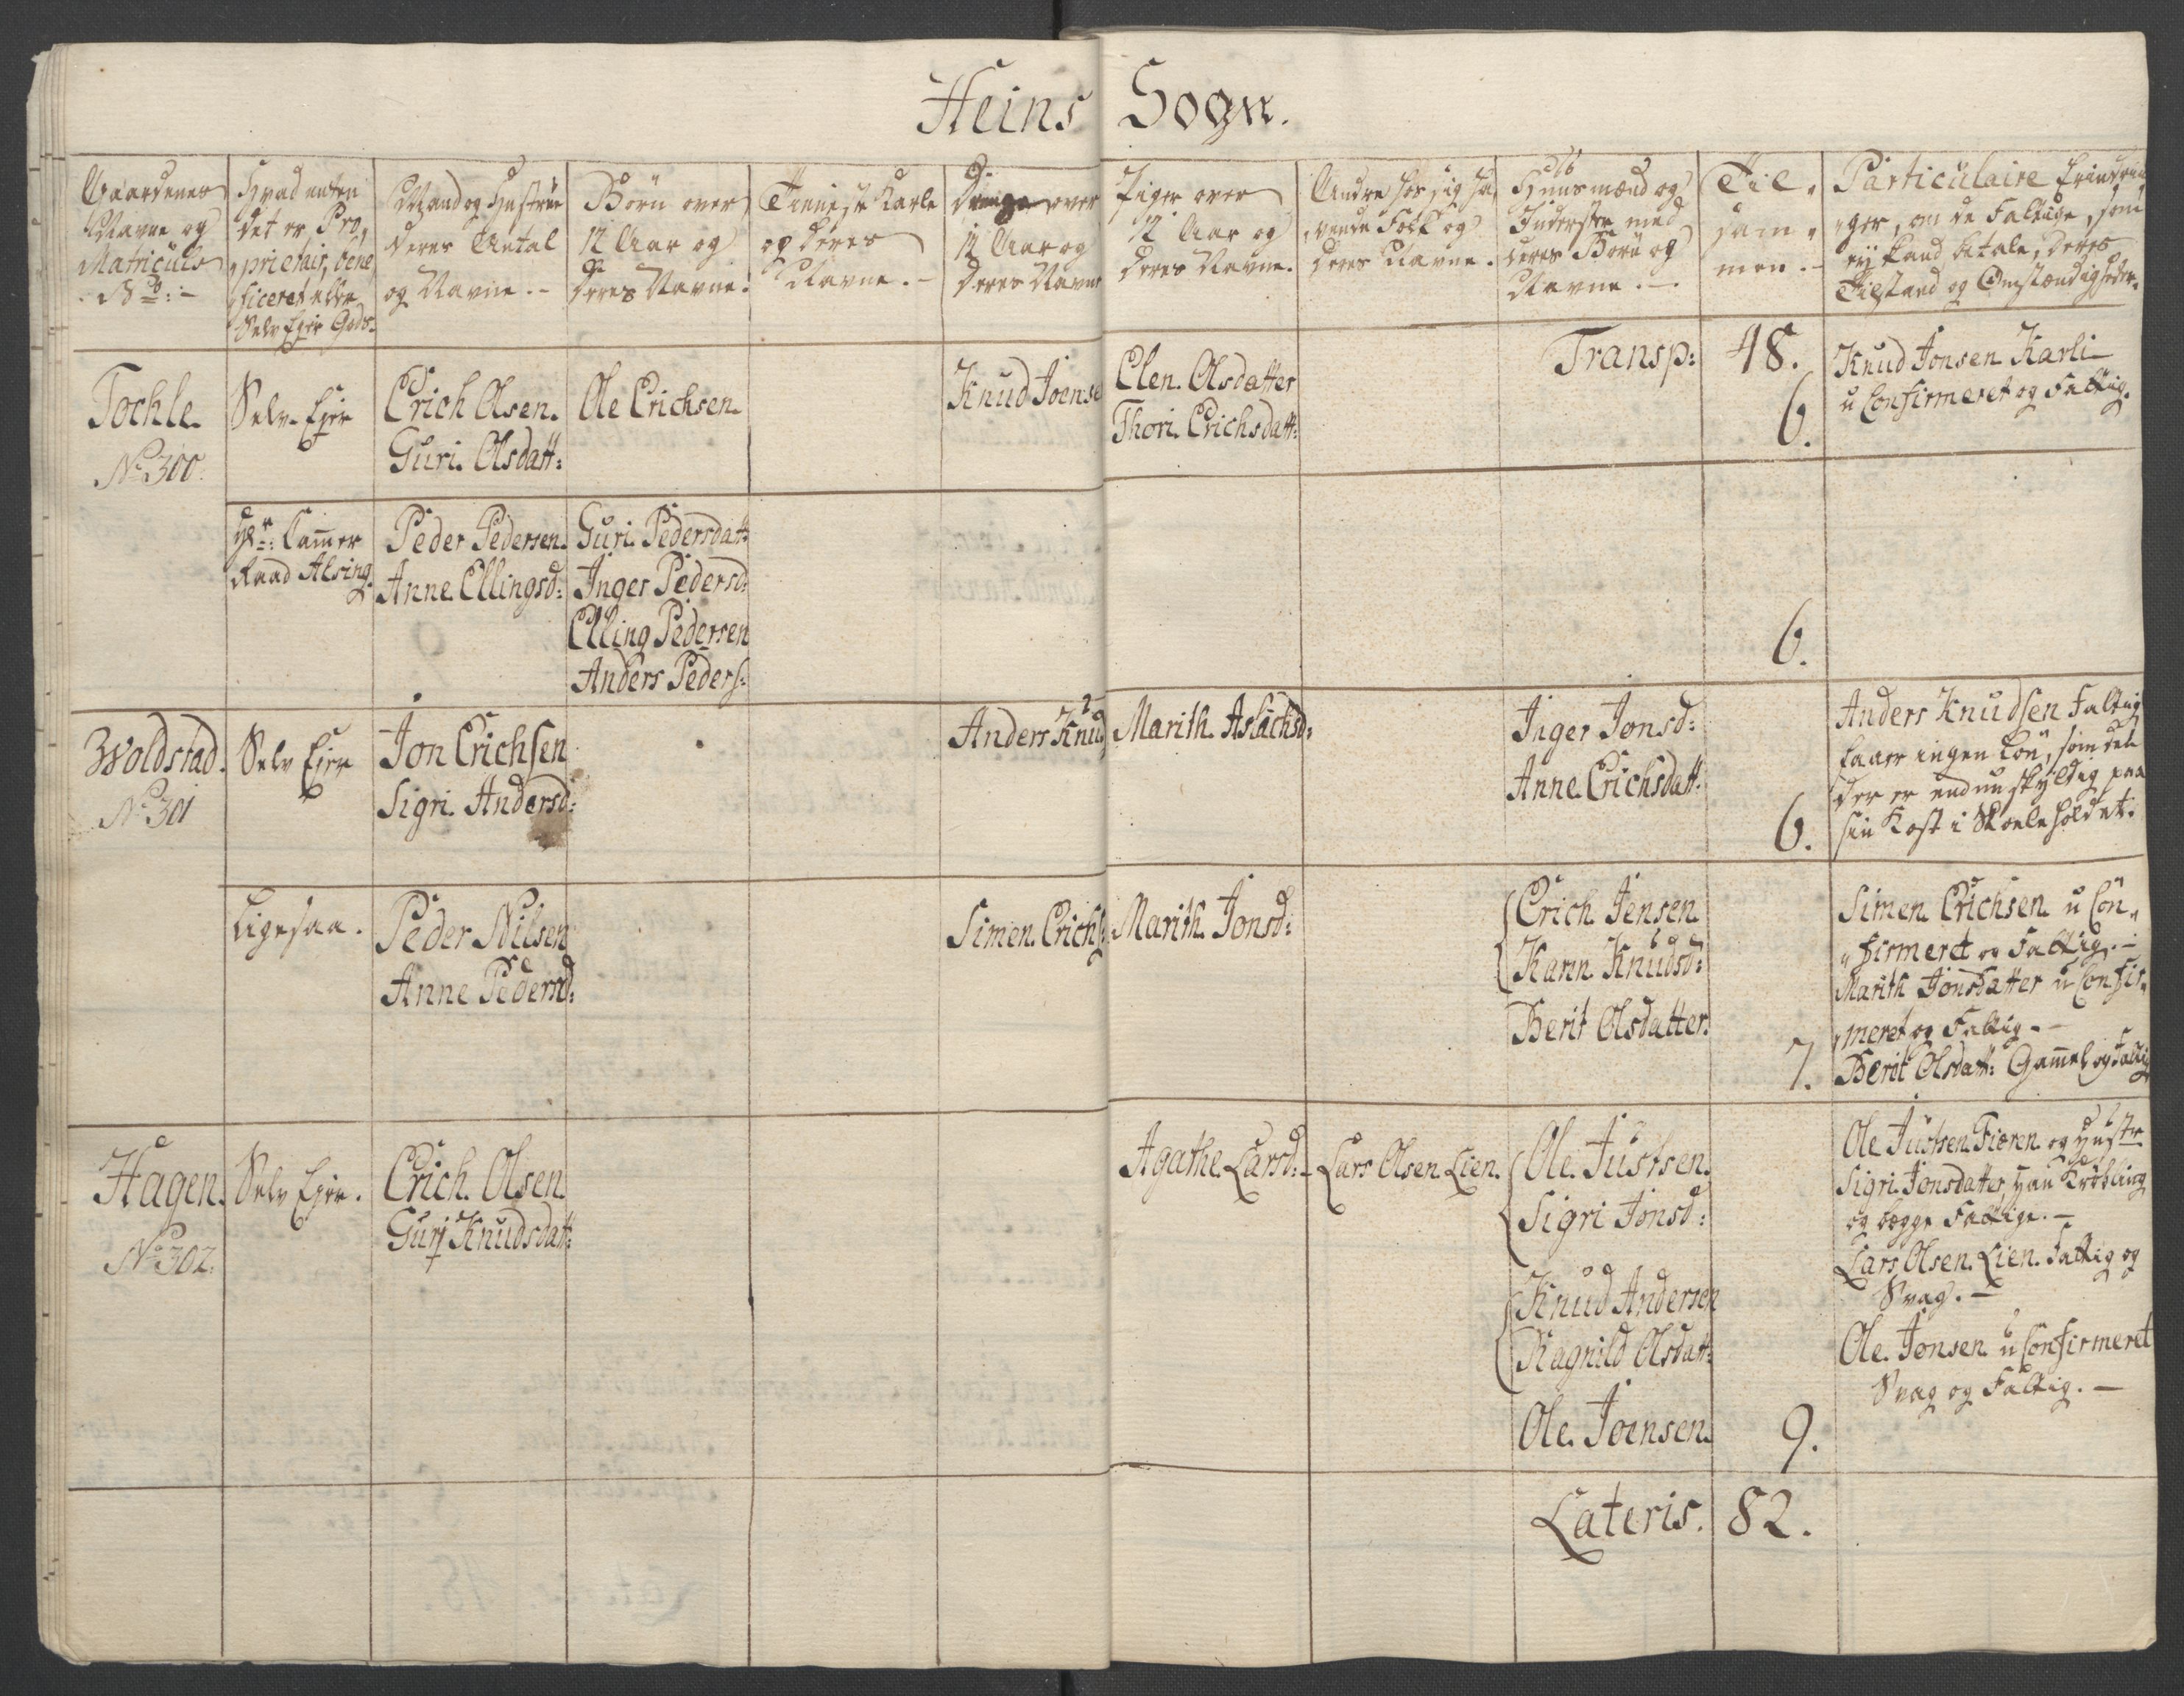 Heins Sogn.
Gaardenes
Navne og
Matriculs
No: -
Hvad enten
det er Pro„
„prietair, bene„
ficeret eller
Selv Ejer Gods.
Mand og Hustrue
deres Antal
og Navne. -
Börn over
12 Aar og
deres Navne.
Tieneste Karle
og deres
Navne. -
Drenge over
12 Aar og
deres Navne
Piger over
12 Aar og
deres Navne.
Andre hos sig ha„
„vende Folk og
deres Navne.
Huusmænd og
Inderster med
deres Börn og
Navne. -
Til„
sam„
men. -
Particulaire Erindrin„
„ger, om de Fattige, som
ej kand betale, deres
Tilstand og Omstændigheder.
Tochle.
No 300.
Selv-Ejer
Erich Olsen.
Guri. Olsdatt:
Ole Erichsen.
Knud Joense
Elen. Olsdatter
Thori. Erichsdatt:
Transp:
48.
6.
Knud Jonsen Karli
u Confirmeret og Fattig.
Hr: Cammer
Raad Alsing.
Peder Pedersen.
Anne Ellingsd:
Guri. Pedersdatt:
Inger Pedersd:
Elling Pedersen
Anders Peders:
6.
Woldstad.
No 301
Selv Ejer
Jon Erichsen
Sigri. Andersd:
Anders Knud
Marith. Aslachsd:
Inger Jonsd:
Anne Erichsdatt:
6.
Anders Knudsen Fattig
faaer ingen Lön, som
der er endnu skyldig paa
sin Kost i Skoleholdet.
Ligesaa.
Peder Nilsen
Anne Pedersd:
Simen. Erichs:
Marith. Jonsd:
Erich. Jensen
Karin Knudsd:
Berit Olsdatter.
7.
Simen Erichsen u Con„
„firmeret og Fattig. -
Marith Jonsdatter u Confir„
„meret og Fattig. -
Berit Olsdatt: Gammel og Fattig
Hagen.
No 302.
Selv Ejer.
Erich. Olsen
Gurj Knudsdatt:
Agathe Larsd:
Lars Olsen Lien.
Ole. Justsen.
Sigri Jonsd:
Knud Andersen
Ragnild Olsdatt:
Ole. Joensen.
9.
Ole Justsen Fieren og Hustr
Sigri. Jonsdatter, han Krøbling
og begge Fattige. -
Lars Olsen. Lien. Fattig og
Svag. -
Ole. Jonsen u Confirmeret
Svag og Fattig. -
Lateris.
82.